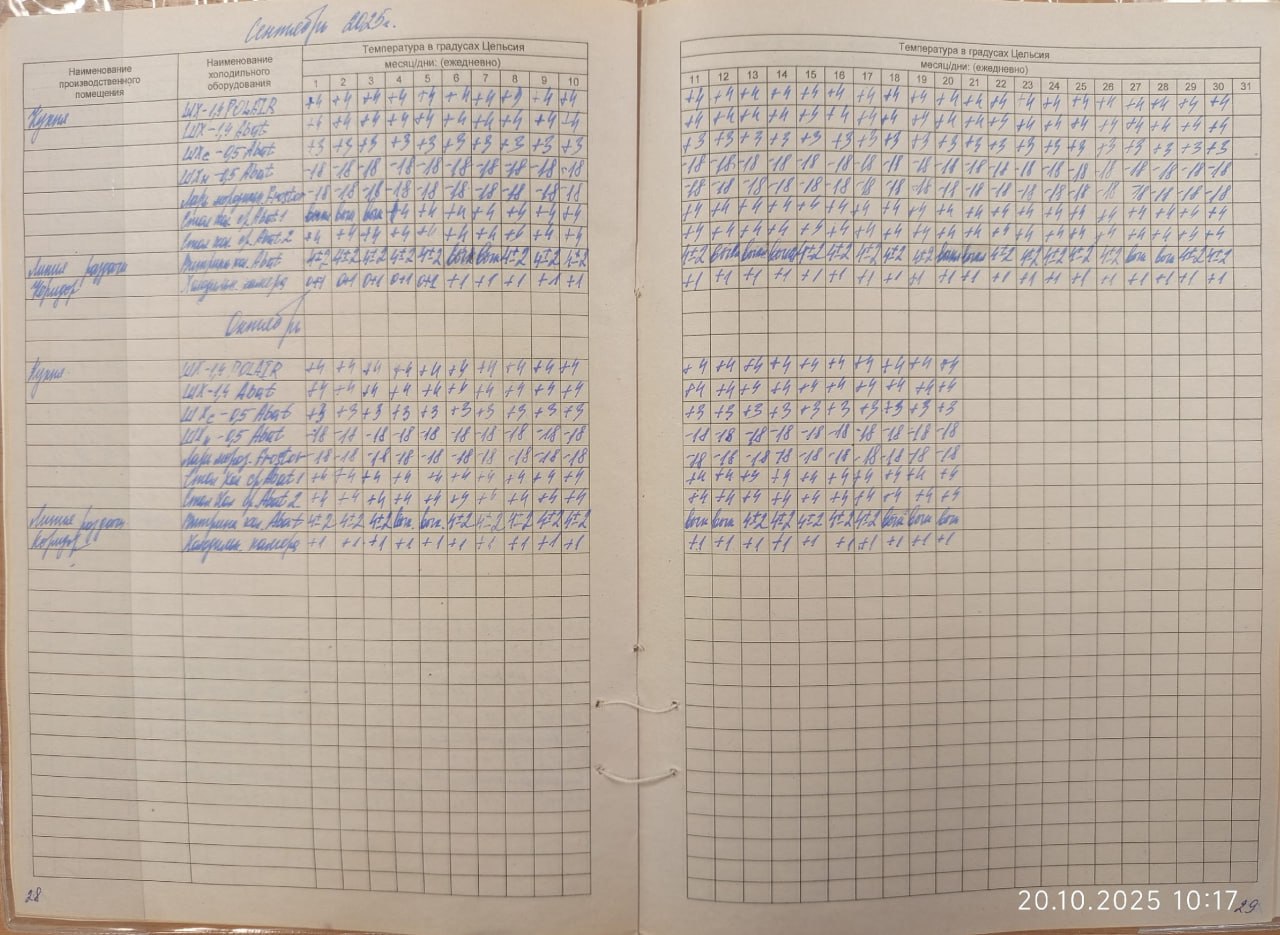 Сентябрь 2025г.
Наименование производственного помещения
Наименование холодильного оборудования
Температура в градусах Цельсия
месяц/дни: (ежедневно)
1 2 3 4 5 6 7 8 9 10
Температура в градусах Цельсия
месяц/дни: (ежедневно)
11 12 13 14 15 16 17 18 19 20 21 22 23 24 25 26 27 28 29 30 31
Кухня ШХ-1,4 POLAIR +4 +4 +4 +4 +4 +4 +4 +4 +4 +4 +4 +4 +4 +4 +4 +4 +4 +4 +4 +4 +4 +4 +4 +4 +4 +4 +4 +4 +4 +4
ШХ-1,4 Abat +4 +4 +4 +4 +4 +4 +4 +4 +4 +4 +4 +4 +4 +4 +4 +4 +4 +4 +4 +4 +4 +4 +4 +4 +4 +4 +4 +4 +4 +4
ШХс-0,5 Abat +3 +3 +3 +3 +3 +3 +3 +3 +3 +3 +3 +3 +3 +3 +3 +3 +3 +3 +3 +3 +3 +3 +3 +3 +3 +3 +3 +3 +3 +3
ШХн-0,5 Abat -18 -18 -18 -18 -18 -18 -18 -18 -18 -18 -18 -18 -18 -18 -18 -18 -18 -18 -18 -18 -18 -18 -18 -18 -18 -18 -18 -18 -18 -18
Ларь морозильн Frostor -18 -18 -18 -18 -18 -18 -18 -18 -18 -18 -18 -18 -18 -18 -18 -18 -18 -18 -18 -18 -18 -18 -18 -18 -18 -18 -18 -18 -18 -18
Стол хол. ср. Abat 1 +4 +4 +4 +4 +4 +4 +4 +4 +4 +4 +4 +4 +4 +4 +4 +4 +4 +4 +4 +4 +4 +4 +4 +4 +4 +4 +4
Стол хол. ср. Abat 2 +4 +4 +4 +4 +4 +4 +4 +4 +4 +4 +4 +4 +4 +4 +4 +4 +4 +4 +4 +4 +4 +4 +4 +4 +4 +4 +4 +4 +4 +4
Линия раздачи Витрина хол. Abat 4±2 4±2 4±2 4±2 4±2 4±2 4±2 4±2 4±2 4±2 4±2 4±2 4±2 4±2 4±2 4±2 4±2 4±2 4±2 4±2 4±2
Коридор Холодильн. камера 0+1 0+1 0+1 0+1 0+2 +1 +1 +1 +1 +1 +1 +1 +1 +1 +1 +1 +1 +1 +1 +1 +1 +1 +1 +1 +1 +1 +1 +1 +1 +1
Октябрь
Кухня ШХ-1,4 POLAIR +4 +4 +4 +4 +4 +4 +4 +4 +4 +4 +4 +4 +4 +4 +4 +4 +4 +4 +4 +4
ШХ-1,4 Abat +4 +4 +4 +4 +4 +4 +4 +4 +4 +4 +4 +4 +4 +4 +4 +4 +4 +4 +4 +4
ШХс-0,5 Abat +3 +3 +3 +3 +3 +3 +3 +3 +3 +3 +3 +3 +3 +3 +3 +3 +3 +3 +3 +3
ШХн-0,5 Abat -18 -18 -18 -18 -18 -18 -18 -18 -18 -18 -18 -18 -18 -18 -18 -18 -18 -18 -18 -18
Ларь мороз. Frostor -18 -18 -18 -18 -18 -18 -18 -18 -18 -18 -18 -18 -18 -18 -18 -18 -18 -18 -18 -18
Стол хол ср. Abat 1 +4 +4 +4 +4 +4 +4 +4 +4 +4 +4 +4 +4 +3 +4 +4 +4 +4 +4 +4 +4
Стол хол ср. Abat 2 +4 +4 +4 +4 +4 +4 +4 +4 +4 +4 +4 +4 +4 +4 +4 +4 +4 +4 +4 +4
Линия раздачи Витрина хол. Abat 4±2 4±2 4±2 4±2 4±2 4±2 4±2 4±2 4±2 4±2 4±2 4±2 4±2
Коридор Холодильн. камера +1 +1 +1 +1 +1 +1 +1 +1 +1 +1 +1 +1 +1 +1 +1 +1 +1 +1 +1 +1
28
29
20.10.2025 10:17